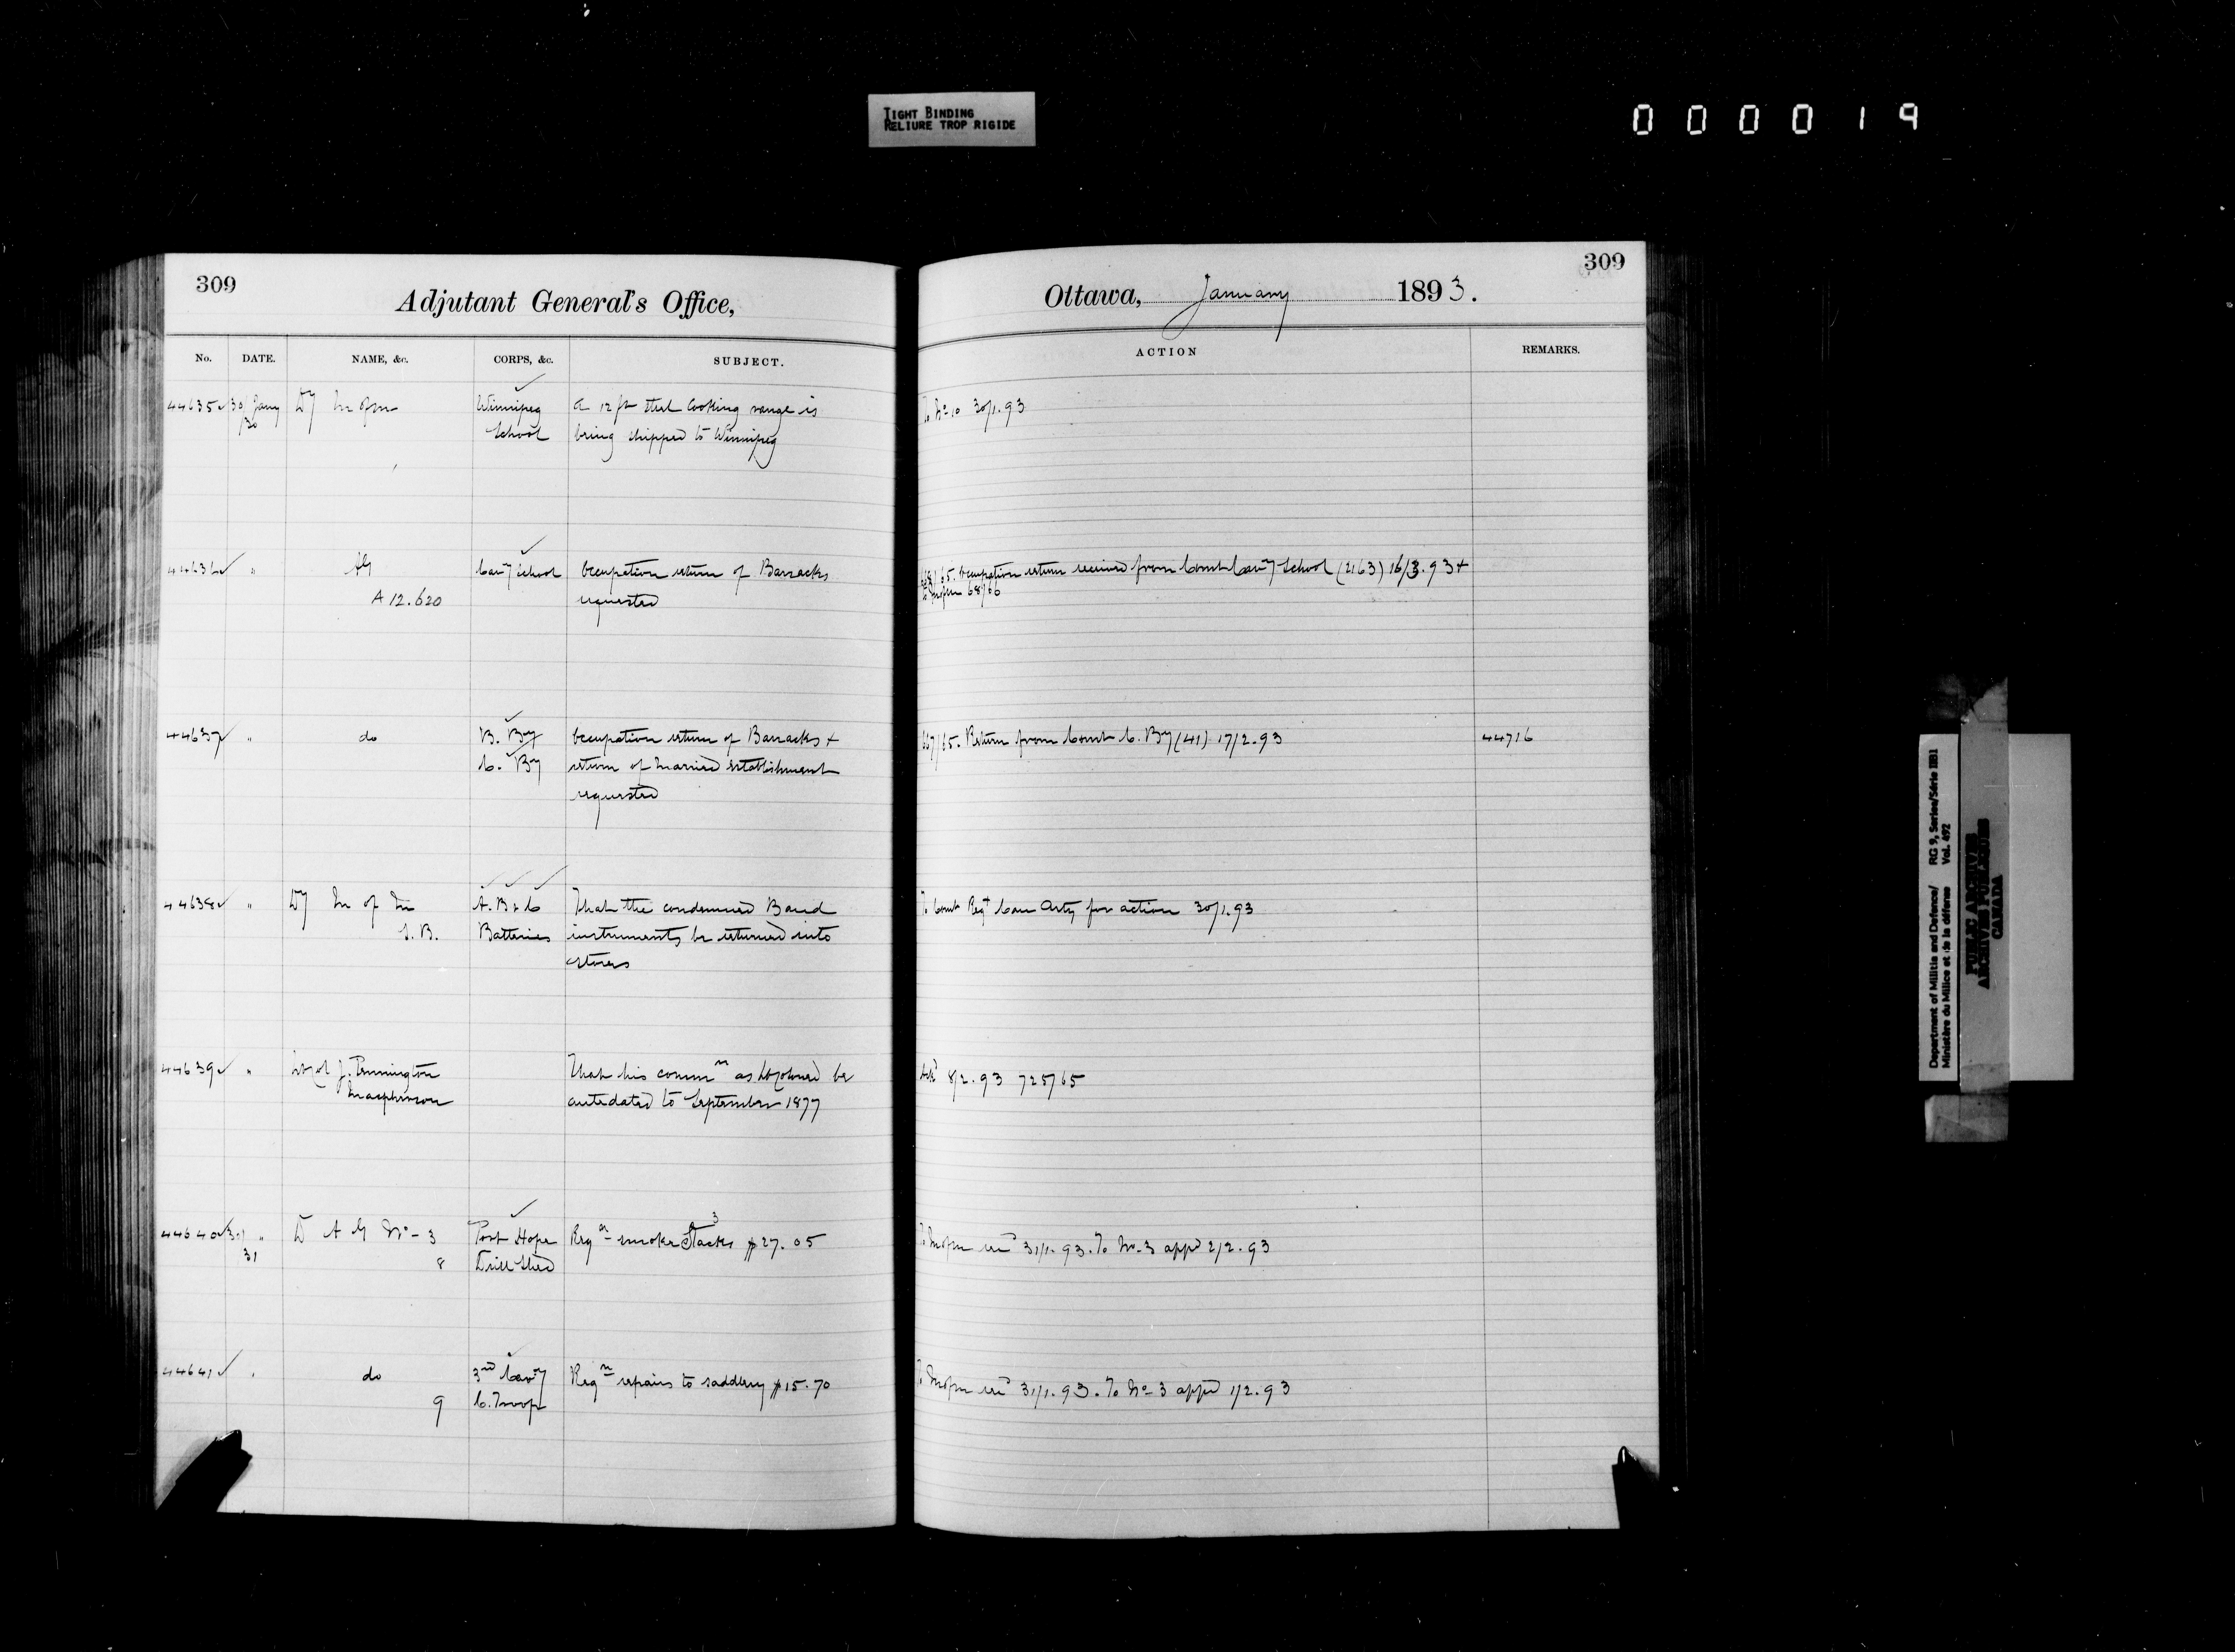 TIGHT BINDING
RELIURE TROP RIGIDE
000019
309
Adjutant General's Office,
No. DATE. NAME, &c. CORPS, &c. SUBJECT.
44635 30/ Jany Dy M of M Winnipeg A 12 ft steel Cooking range is
/30 School being shipped to Winnipeg
44636 " AG Cavy School Occupation return of Barracks
A 12.620 requested
44637 " do B. By Occupation return of Barracks +
C. By return of Married Establishment
requested
44638 " Dy M of M A. B & C That the condemned Band
S. B. Batteries instruments be returned into
stores
44639 " Lt Col J. Pennington That his commn as Lt Colonel be
Macpherson antedated to September 1877
44640 30/ " D A G No - 3 Port Hope Regn smoke Stacks $27.05
31 8 Drill Shed 3
44641 " do 3rd Cavy Regn repairs to saddlery $15.70
9 C. Troop
309
Ottawa, January 1893.
ACTION REMARKS.
To No 10 30/1.93
65. Occupation return received from Comt Cavy School (2163) 16/3.93 +
to M of M 68/66
667/65. Return from Comt C. By (41) 17/2.93 44716
To Comt Regt Can Arty for action 30/1.93
Ackd 8/2.93 725/65
To M of M 31/1.93. To No - 3 appd 2/2.93
To M of M 31/1.93. To No - 3 appd 1/2.93
Department of Militia and Defence/ RG 9, Series/Série IIB1
Ministère du Milice et de la défense Vol. 492
PUBLIC ARCHIVES
ARCHIVES PUBLIQUES
CANADA